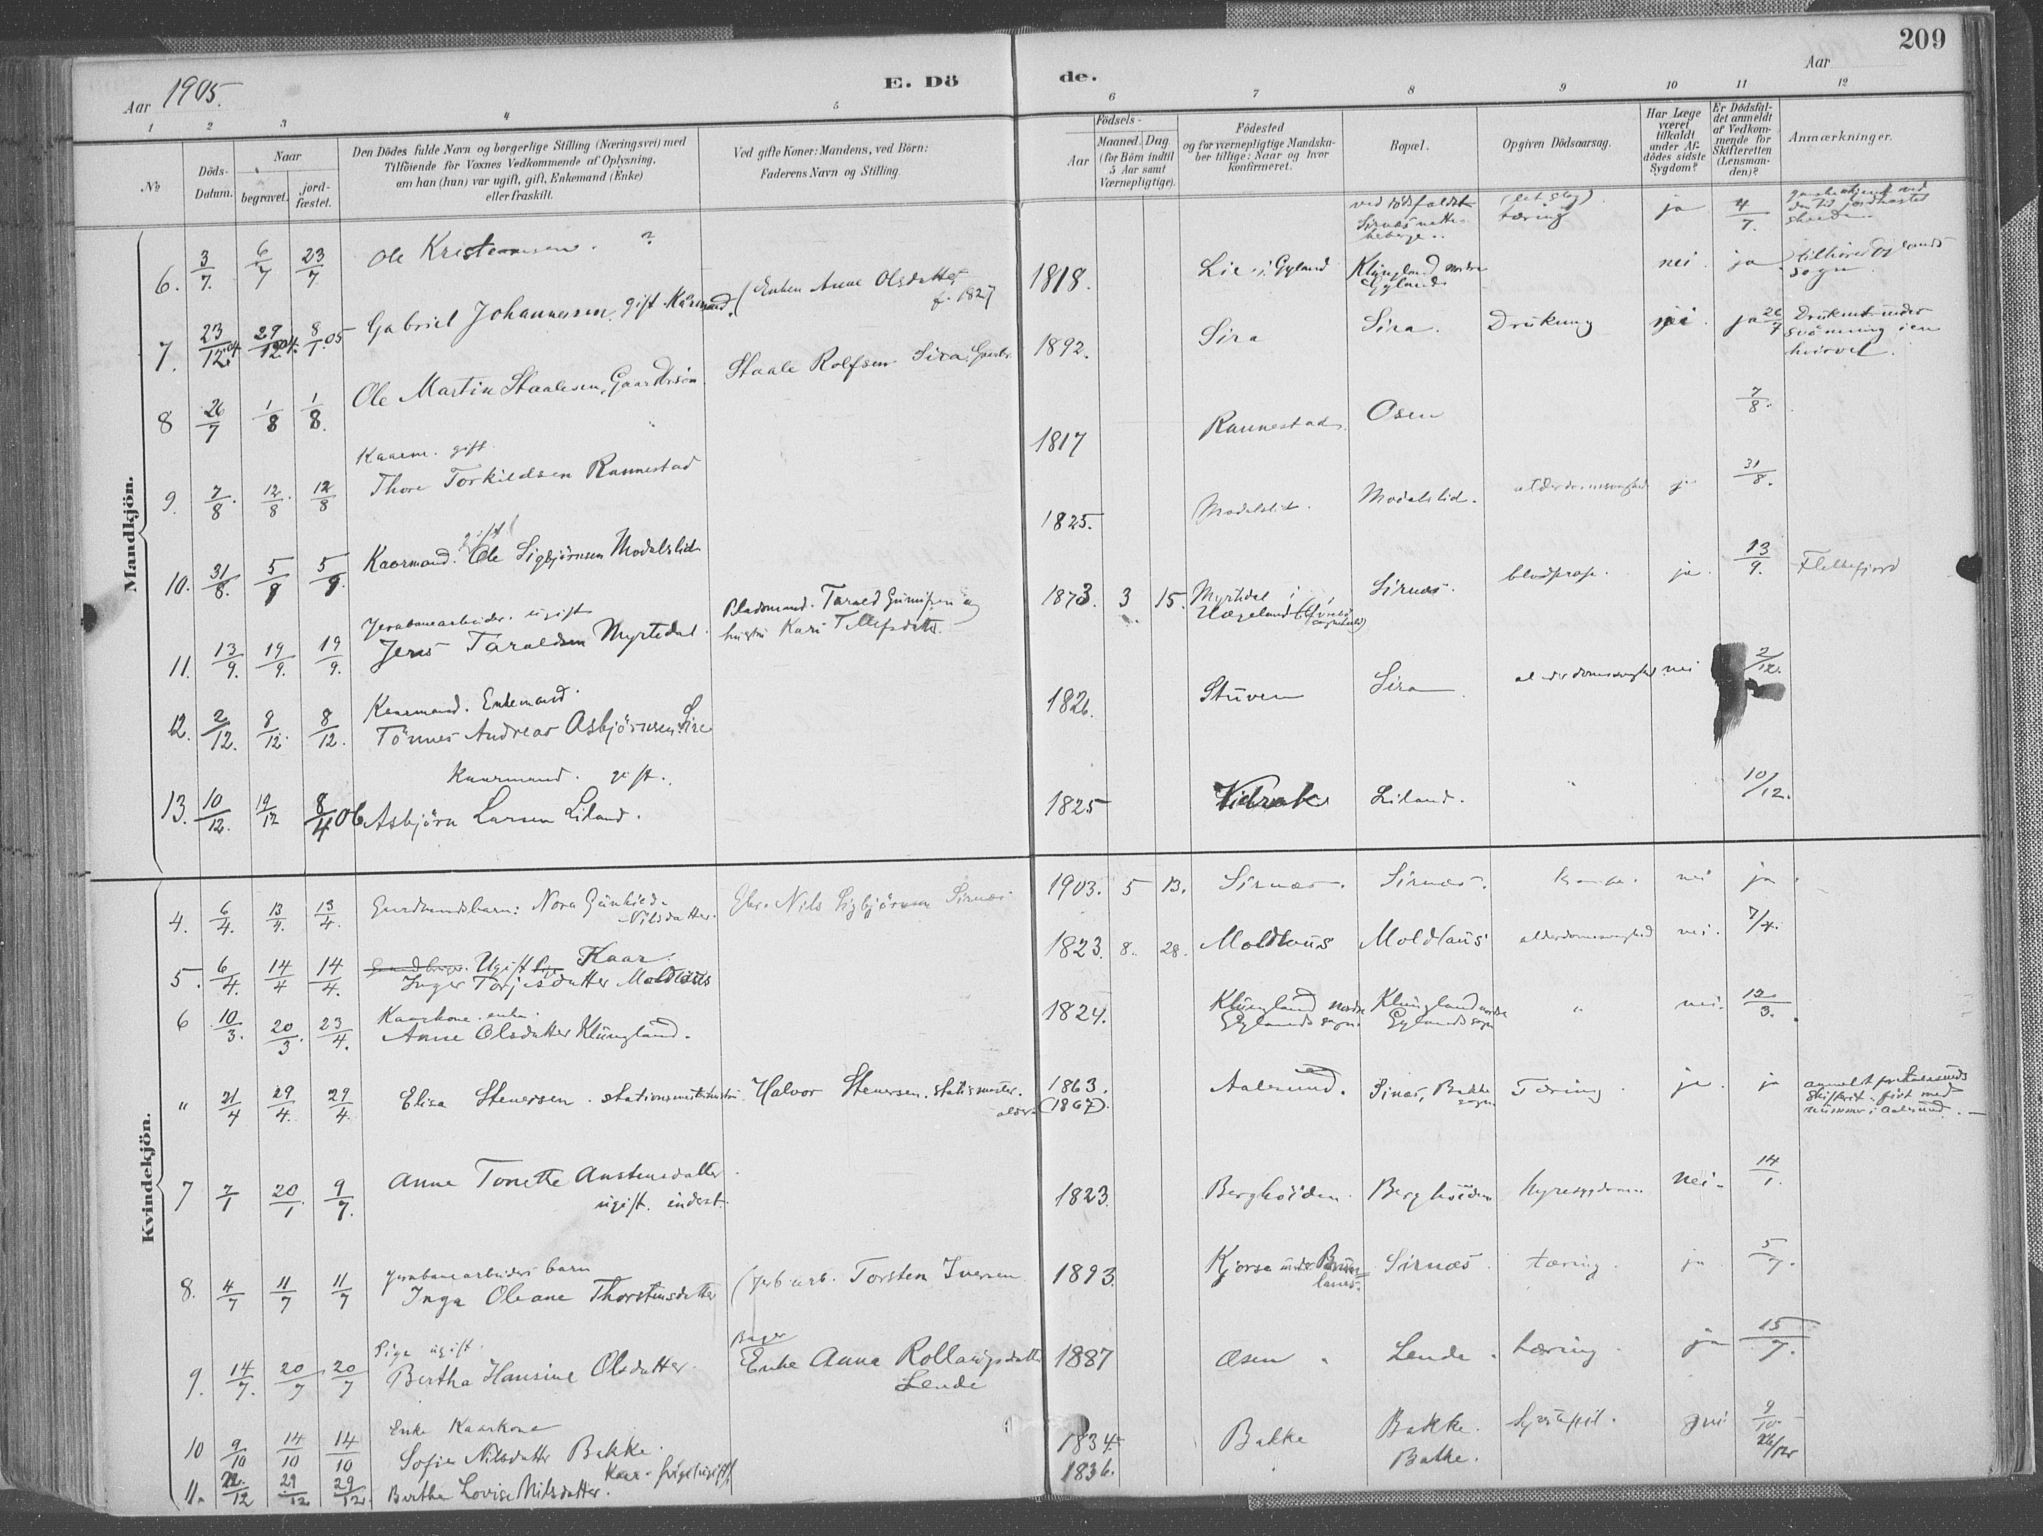 209
Aar 1905. E. Dö de. Aar
1 2 3 4 5 6 7 8 9 10 11 12
No
Döds-Datum.
Naar
begravet.
jord-fæstet.
Den Dödes fulde Navn og borgerlige Stilling (Næringsvei) med
Tilföiende for Voxnes Vedkommende af Oplysning,
om han (hun) var ugift, gift, Enkemand (Enke)
eller fraskilt.
Ved gifte Koner: Mandens, ved Börn:
Faderens Navn og Stilling.
Födsels-
Aar
Maaned. Dag.
(for Börn indtil
5 Aar samt
Værnepligtige).
Födested
og for værnepligtige Mandska-
ber tillige: Naar og hvor
konfirmeret.
Bopæl.
Opgiven Dödsaarsag.
Har Læge
været
tilkaldt
under Af-
dödes sidste
Sygdom?
Er Dödsfal-
det anmeldt
af Vedkom-
mende for
Skifteretten
(Lensman-
den)?
Anmærkninger.
Mandkjön.
6. 3/7. 6/7 23/7 Ole Kristensen. ? ved dödsfaldet Sirnæs tæring ja 4/7.
7. 23/12.04. 29/12.04. 8/1.05 Gabriel Johannesen. gift. Kårmand. (Enken Anne Olsdatter f. 1827 1818. Lie i Gyland Klungland nordre Gylands nei ja tilhører Gylands sogn
8 26/7 1/8 1/8. Ole Martin Staalesen, Gaardbrsön. Staale Rolfsen Sira, Gaardbr. 1892. Sira Sira. Drukning nei. ja 26/7 Druknet under svömning i en hvirvel.
9. 7/8. 12/8. 12/8 Kaarm. gift Thore Torkildsen Rannestad 1817 Rannestad. Osen 7/8.
10. 31/8. 5/9 5/9. Kaarmand. gift Ole Sigbjörnsen Modalslid 1825. Modalslid. Modalslid. alderdomssvaghed ja 31/8.
11. 13/9. 19/9. 19/9. Jernbanearbeider. ugift Jens Taraldsen Myrtedal. Pladsmand. Tarald Gunufsen og hustru Kari Tellefsdatter. 1873. 3 15. Myrtedal i Hægeland Sirnæs. blodprop. ja. 13/9. Flekkefjord
12. 2/12. 8/12. 8/12. Kaarmand. Enkemand. Tönnes Andreas Asbjörnsen Sire 1826. Stuven Sira alderdomssvaghed nei 2/12.
13. 10/12. 19/12 8/4 06 Kaarmand. gift. Asbjörn Larsen Liland. 1825 Vidrak Liland. " 10/12.
Kvindekjön.
4. 6/4. 13/4. 13/4. Gaardmandsbarn: Nora Gunhild Nilsdatter. Gbr. Nils Sigbjörnsen Sirnæs 1903. 5 13. Sirnæs. Sirnæs. nei ja.
5. 6/4. 14/4 14/4. Ugift Kaar. Inger Torjesdatter Moldhus 1823. 8. 28. Moldhus Moldhus alderdomssvaghed nei. 7/4.
6 10/3. 20/3. 23/4. Kaarkone. enke. Anne Olsdatter Klungland. 1824. Klungland nordre Gylands sogn Klungland nordre Gylands sogn " nei. 12/3.
" 21/4 29/4. 29/4. Elisa Stenersen. stationsmesterhustru Halvor Stenersen. stationsmester. 1863. (1867). Aalesund. Sirnæs, Bakke sogn Tæring. ja. ja anmeldt for Aalesunds Skifteret. fört med nummer i Aalesund.
7 7/1 20/1. 9/7. Anne Tonette Austensdatter. ugift. inderst. 1823. Berghöiden. Berghöiden Nyresygdom nei. 14/1.
8. 4/7 11/7 11/7 Jernbanearbeiders barn Inga Oleane Thorstensdatter (Jernb. arb. Torsten Iversen 1893. Kjorse under Brunlanes. Sirnæs. tæring. ja. 5/7.
9. 14/7. 20/7 20/7 Pige ugift. Bertha Hansine Olsdatter. Enke Anna Rollaugsdatter Lende 1887 Osen. Lende. tæring. ja 15/7.
10 9/10 14/10 14/10 Enke Kaarkone Sofie Nilsdatter Bakke. 1834. Bakke Bakke. nei 9/10.
11. 22/12 29/12 29/12. Bertha Lovise Nilsdatter. Kaar-Pige (ugift) 1836. Bakke. 26/12